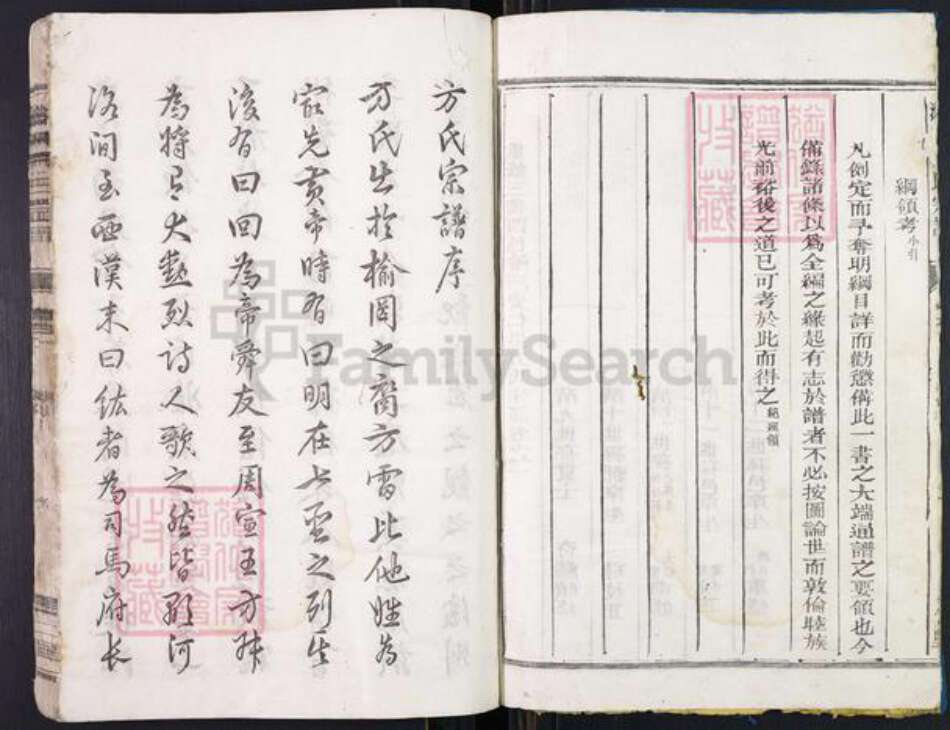 綱領考小引
凡例定而予奪明綱目詳而勸懲備此一書之大端通譜之要領也今
備錄諸條以爲全編之緣起有志於譜者不必按圖論世而敦倫睦族
光前裕後之道已可考於此而得之
方氏宗譜序
方氏生於榆罔之裔方雷比他姓為
最先黃帝時有曰明在七聖之列生
後有曰回為帝舜友至周宣王方叔
為將有大勳烈詩人歌之然皆顯河
洛間至西漢末曰紘者為司馬府長
FamilySearch